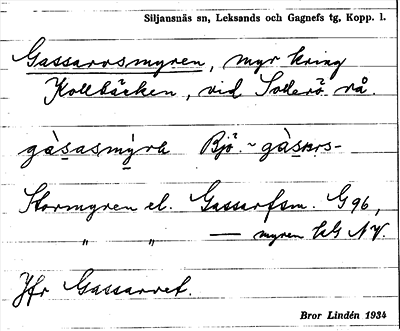 Siljansnäs sn, Leksands och Gagnefs tg, Kopp. l.
Gassarvsmyren, myr kring
Kollbäcken, vid Soderö rå.
gàsasmỳra Bjö. ~ gàsars-
Stormyren el. Gassarfsm. G96,
" " — myren HG NV.
Jfr Gassarvet.
Bror Lindén 1934